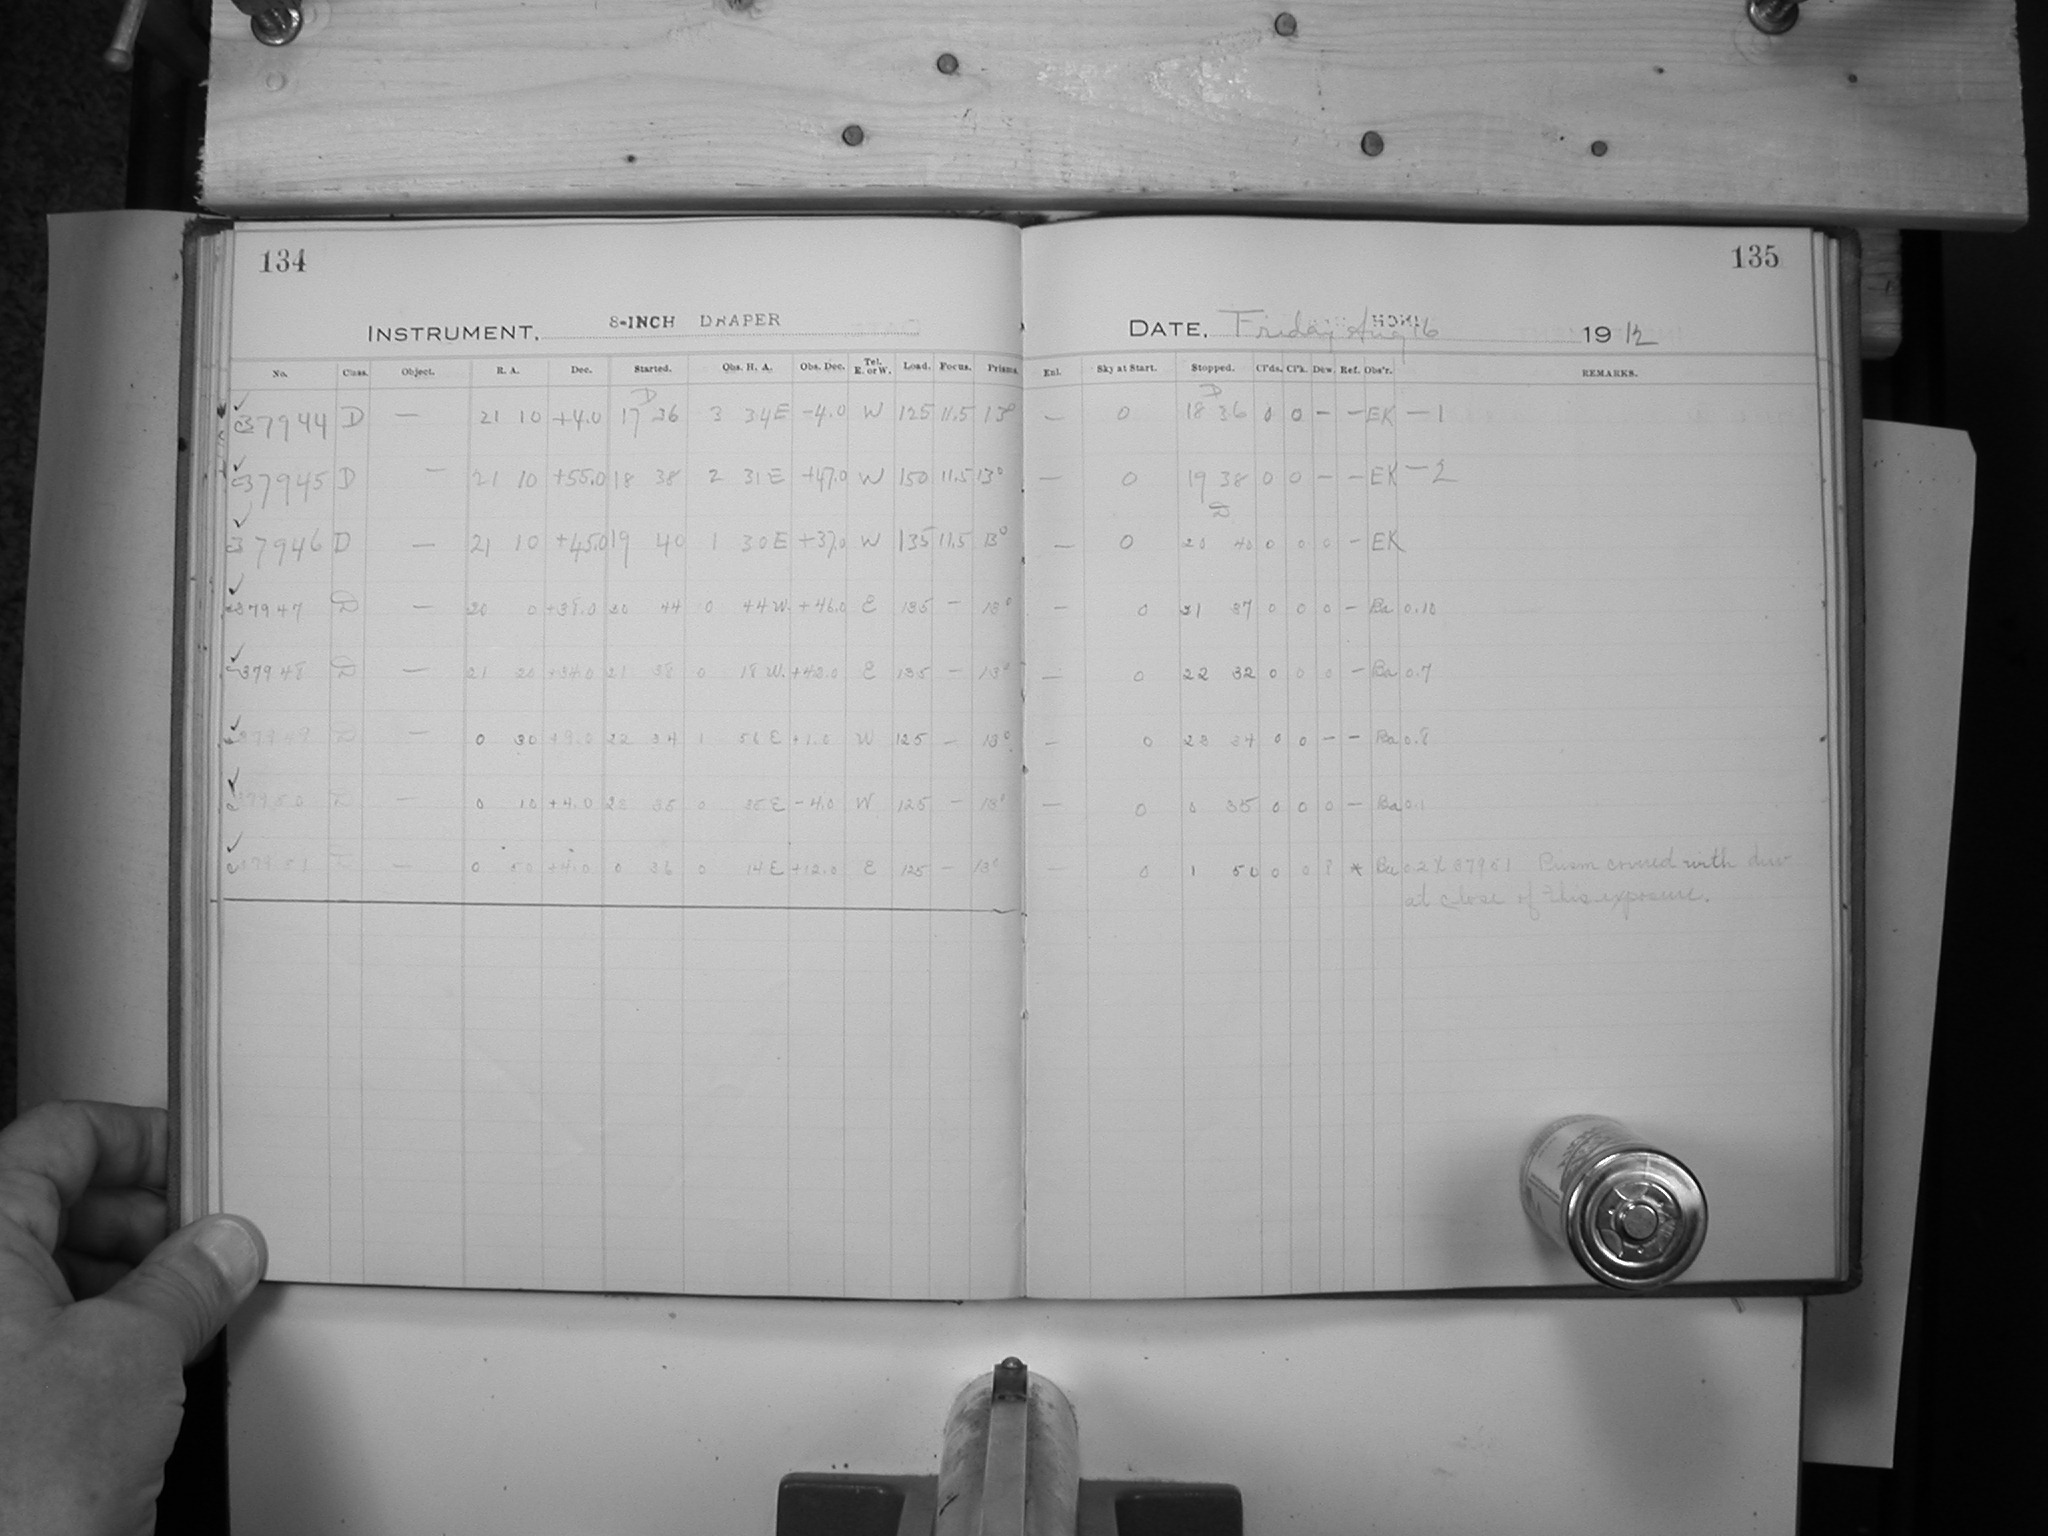 134
INSTRUMENT, 8-INCH DRAPER
No. Class. Object. R. A. Dec. Started. Obs. H. A. Obs. Dec. Tel. E. or W. Load. Focus. Prisms.
37944 D — 21 10 +4.0 17 36 3 34 E -4.0 W 125 11.5 13°
37945 D — 21 10 +55.0 18 38 2 31 E +47.0 W 150 11.5 13°
37946 D — 21 10 +45.0 19 40 1 30 E +37.0 W 135 11.5 13°
37947 D — 20 0 +38.0 20 44 0 44 W. +46.0 E 135 — 13°
37948 D — 21 20 +34.0 21 38 0 18 W. +42.0 E 135 — 13°
37949 D — 0 30 +9.0 22 34 1 56 E +1.0 W 125 — 13°
37950 D — 0 10 +4.0 23 35 0 35 E -4.0 W 125 — 13°
37951 D — 0 50 +4.0 0 36 0 14 E +12.0 E 125 — 13°
135
DATE, Friday Aug 16 1912
Enl. Sky at Start. Stopped. Cl'ds. Cl'k. Dew. Ref. Obs'r. REMARKS.
— 0 18 36 0 0 — — EK — 1
— 0 19 38 0 0 — — EK — 2
— 0 20 40 0 0 0 — EK
— 0 21 37 0 0 0 — Ba 0.10
— 0 22 32 0 0 0 — Ba 0.7
— 0 23 34 0 0 — — Ba 0.8
— 0 0 35 0 0 0 — Ba 0.1
— 0 1 50 0 0 * Ba 0.2 37951 Prism covered with dew
at close of this exposure.